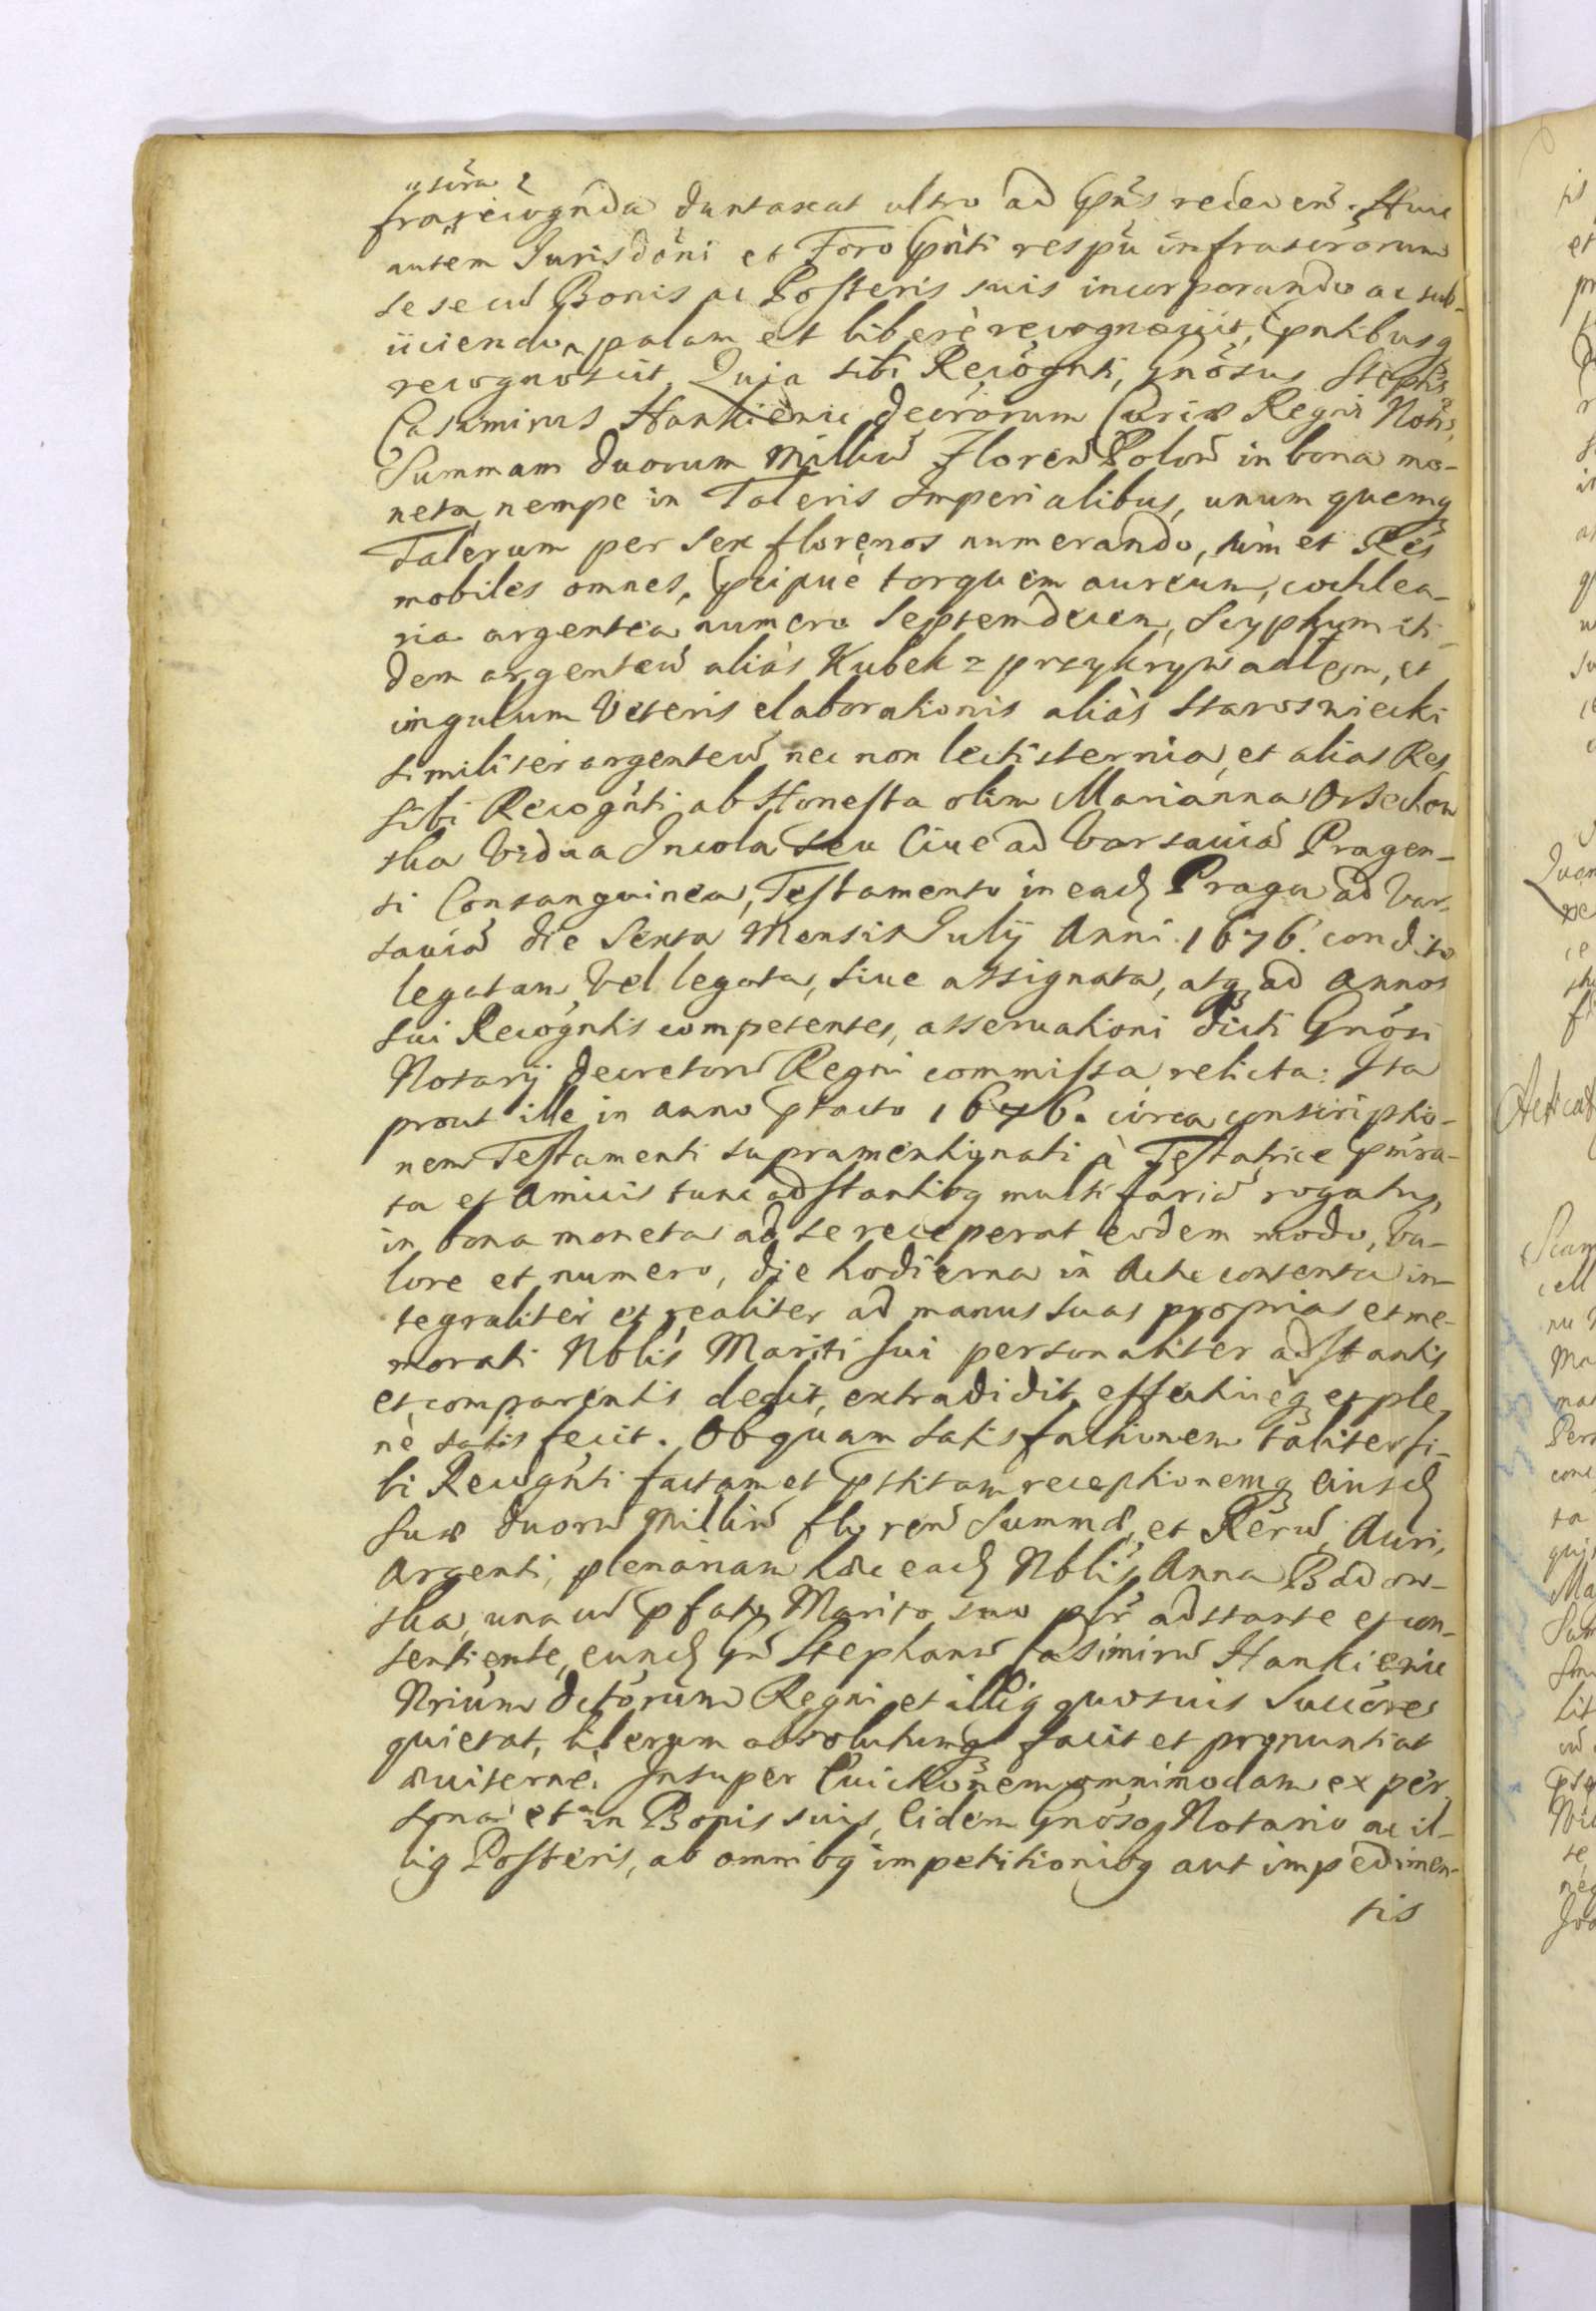 usūra
fra recognda duntaxat ultro ad pns redeuen. Huic
autem Jurisdoni et Foro pnti respu infrascrorum
se se cu Bonis ac Posteris suis incorporando ac sub-
iiciendo, palam et liberè recognouit, pntibusq
recognoscit, Quja sibi Recognti, Gnosus Stephs
Casimirus Hankiewic decrorum Curiæ Regni Nots,
Summam duorum Milliu Floren Polon in bona mo-
neta, nempe in Taleris Imperialibus, unum quemq
Talerum per sex florenos numerando, tùm et Res
mobiles omnes, pcipuè torquem aureum, cochlea-
ria argentea numero septemdecem, Scyphum iti-
dem argenteu aliàs Kubek z przykrywadłem, et
cingulum Veteris elaborationis aliàs staroswiecki
similiter argenteu nec non lectisternia, et alias Res
sibi Recognti ab Honesta olim Marianna Orsechow
ska Vidua Incola seu Ciue ad Varsauia Pragen-
si Consanguinea, Testamento in ead Praga ad Var-
sauia die Sexta Mensis Julij Anni 1676. condito
legatam, vel legata, siue assignata, atq ad annos
sui Recogntis competentes, asseruationi dicti Gnosi
Notarij decretoru Regni commissa, relicta: Ita
prout ille in anno ptacto 1676. circa conscriptio-
nem Testamenti supramentionati à Testatrice pmra-
ta et Amicis tunc adstantibq multifaria rogatus,
in bona moneta ad se receperat eodem modo, va-
lore et numero, die hodierna in Acte contenta in-
tegraliter et realiter ad manus suas proprias et me-
morati Nblis Mariti sui personaliter adstantis
et comparentis dedit, extradidit, effectiueq et ple-
nè satis fecit. Ob quam satisfactionem taliter si-
bi Recognti factam et pstitam receptionemq eiusd
suæ duoru Milliu floren Summæ, et Reru, Auri,
Argenti, plenariam hæc ead Nblis Anna Badow-
ska, una cu pfato Marito suo plr adstante et con-
sentiente, eund Gn Stephanu Casimiru Hankiewic
Nrium dctorum Regni et illiq quosuis Succores
quietat, liberum absolutumq facit et pronuntiat
æuiternè. Insuper Euictionem omnimodam ex per-
sona et in Bonis suis, Eidem Gnoso Notario ac il-
liq Posteris, ab omnibq impetitionibq aut impedimen-
tis